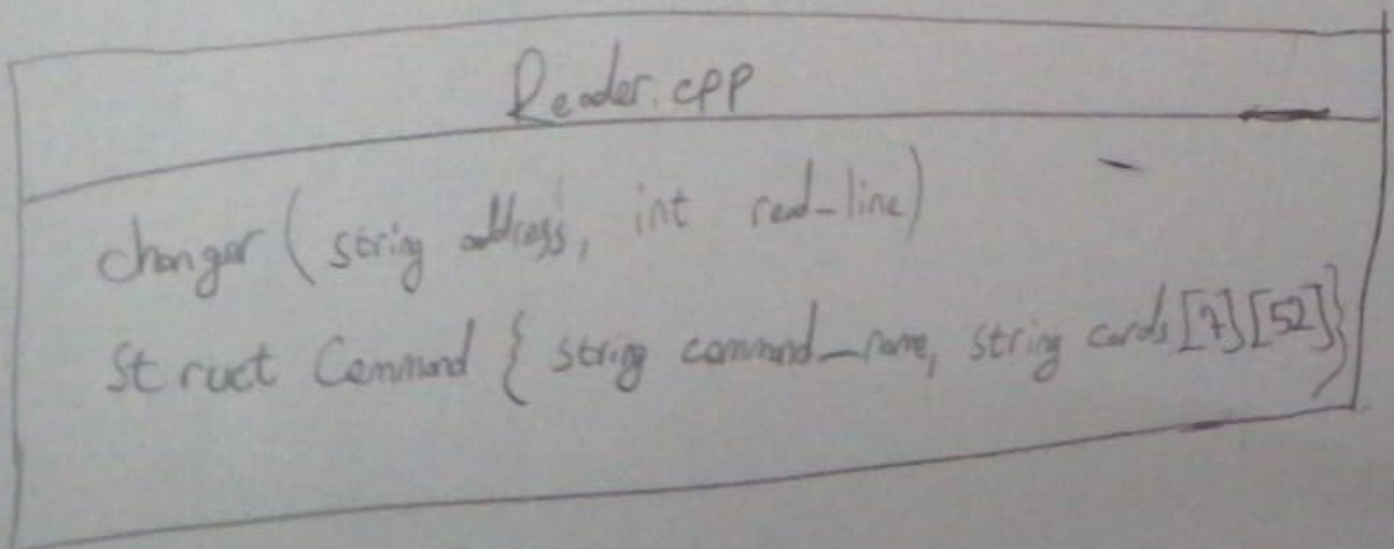 Reader.cpp
changer (string address, int read_line)
Struct Command { string command_name, string cards [7][52]}